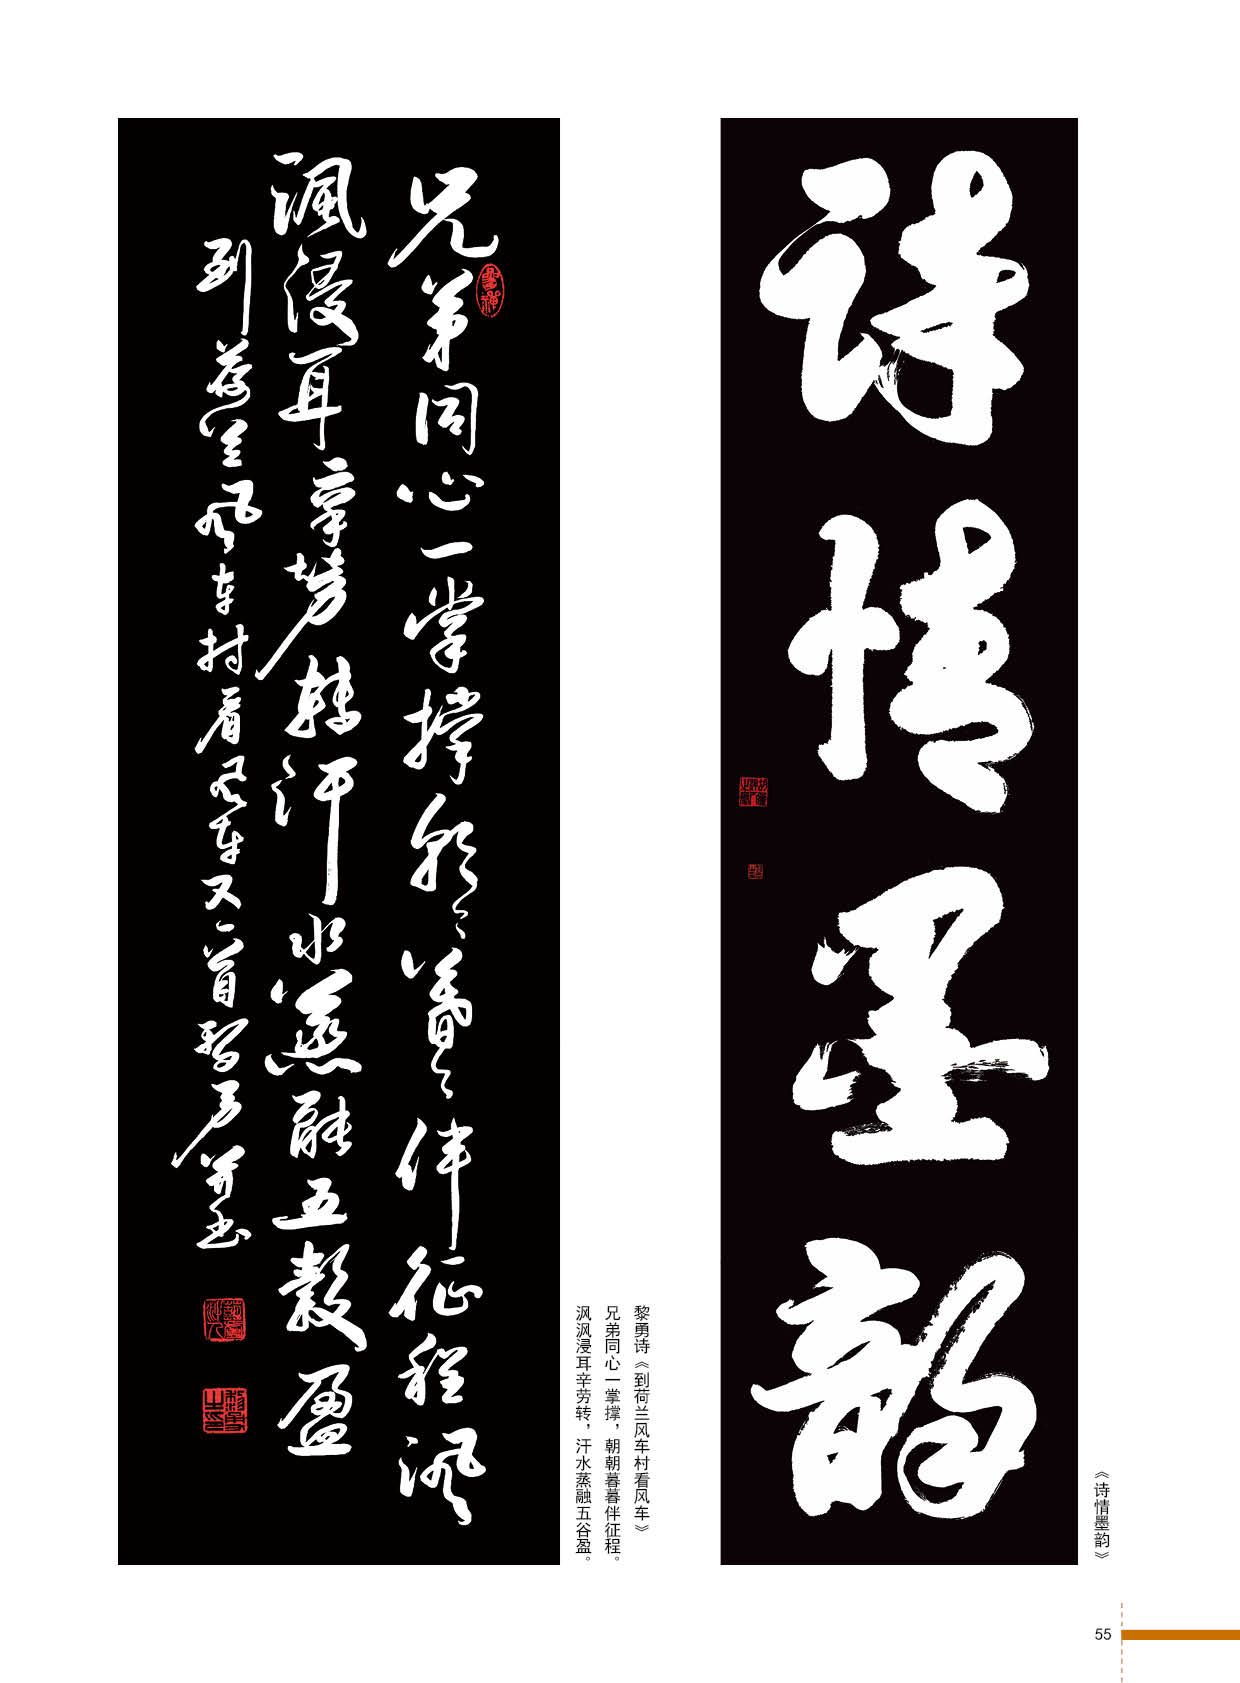 诗情墨韵
《诗情墨韵》
兄弟同心一掌撑朝々暮々伴征程渢
渢浸耳辛劳转汗水蒸融五穀盈
到荷兰风车村看风车又一首黎勇并书
黎勇诗《到荷兰风车村看风车》
兄弟同心一掌撑，朝朝暮暮伴征程。
沨沨浸耳辛劳转，汗水蒸融五谷盈。
55